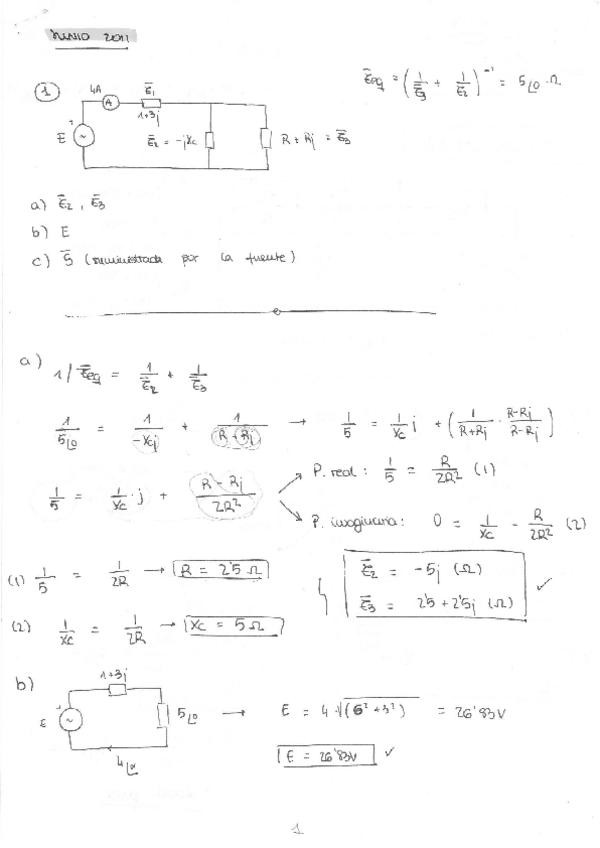 JUNIO 2011
1
4A
A
Z̄₁
1+3j
E
Z̄₂ = -jXc
R + Rj = Z̄₃
Z̄eq = (1/Z̄₃ + 1/Z̄₂)⁻¹ = 5∠0 Ω
a) Z̄₂, Z̄₃
b) E
c) S̄ (suministrada por la fuente)
a) 1/Z̄eq = 1/Z̄₂ + 1/Z̄₃
1/5∠0 = 1/-Xcj + 1/(R+Rj) → 1/5 = 1/Xc j + (1/R+Rj · R-Rj/R-Rj)
1/5 = 1/Xc · j + R-Rj/2R²
P. real: 1/5 = R/2R² (1)
P. imaginaria: 0 = 1/Xc - R/2R² (2)
(1) 1/5 = 1/2R → R = 2'5 Ω
(2) 1/Xc = 1/2R → Xc = 5 Ω
Z̄₂ = -5j (Ω)
Z̄₃ = 2'5 + 2'5j (Ω)
b)
1+3j
E
5∠0
4∠α
→ E = 4·√(6² + 3²) = 26'83V
E = 26'83V
1